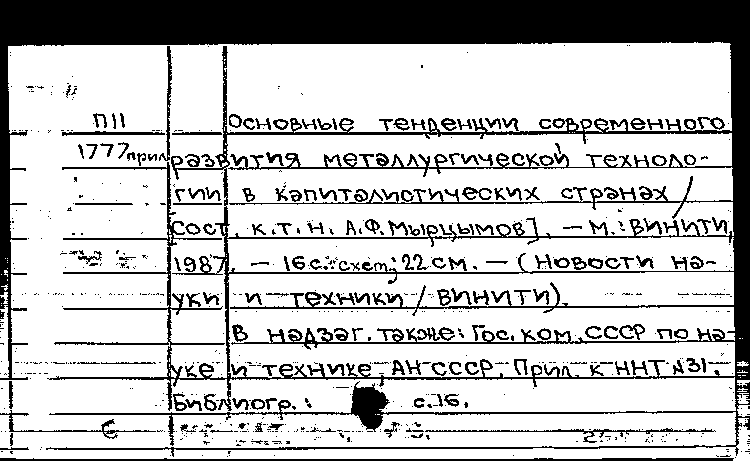 П11 Основные тенденции современного
1777прил развития металлургической техноло-
гии в капиталистических странах /
[Сост. к.т.н. А.Ф.Мырцымов]. – М.: ВИНИТИ,
1987. – 16 с.: схем; 22 см. – (Новости на-
уки и техники / ВИНИТИ).
В надзаг. также: Гос. ком. СССР по на-
уке и технике, АН СССР. Прил. к ННТ №31.
Библиогр.: с.16.